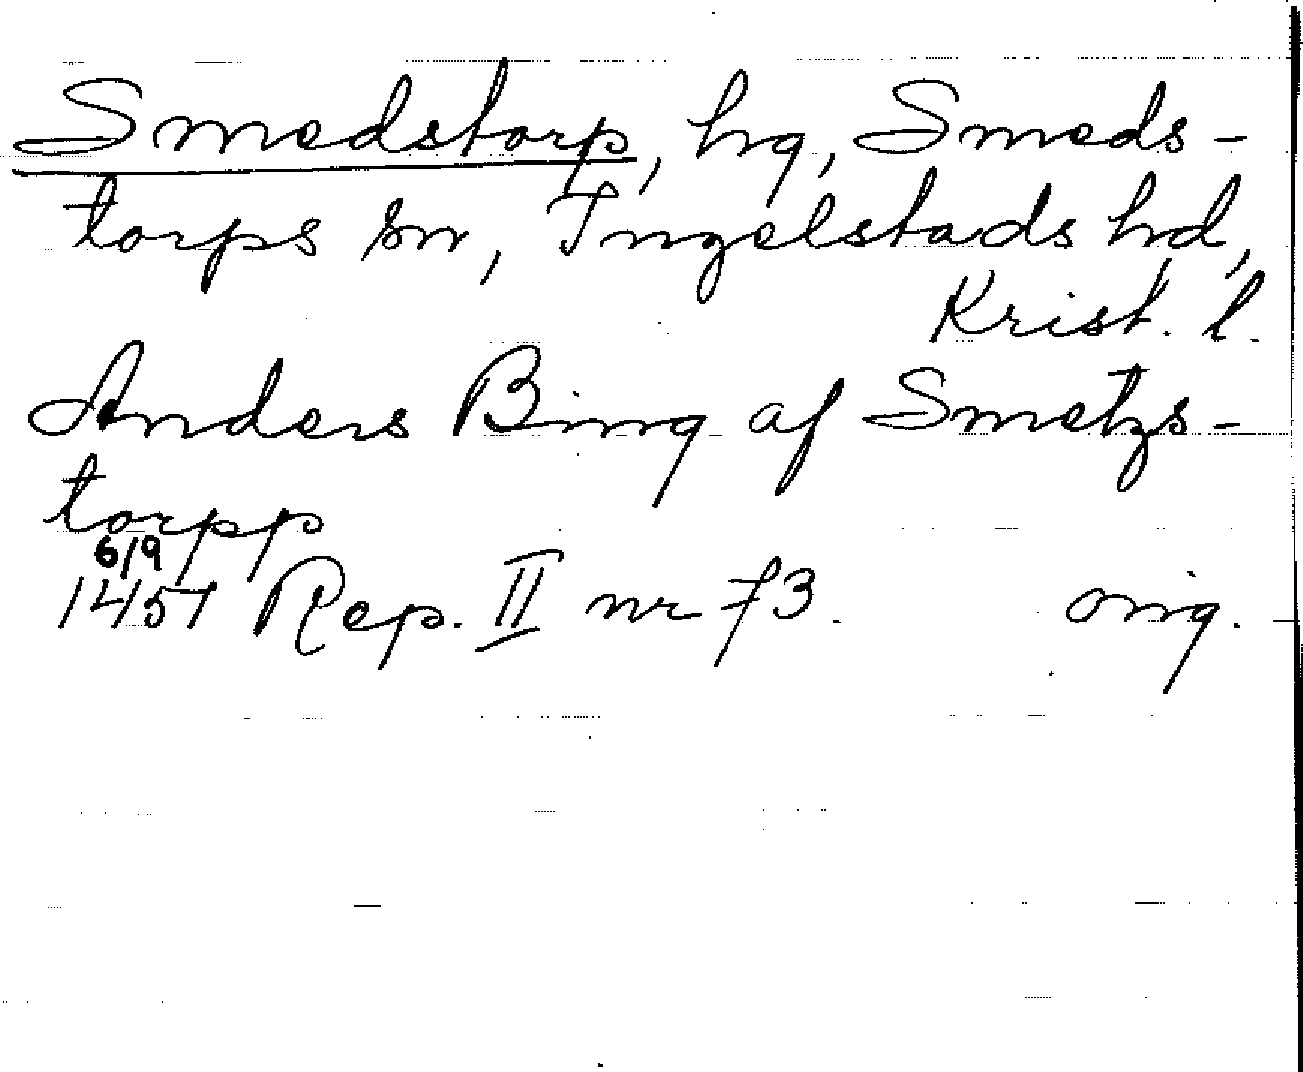 Smedstorp, hg, Smeds-
torps sn, Ingelstads hd,
Krist. l.
Anders Bing af Smetzs-
torpp
6/9
1451 Rep. II nr 73. orig.